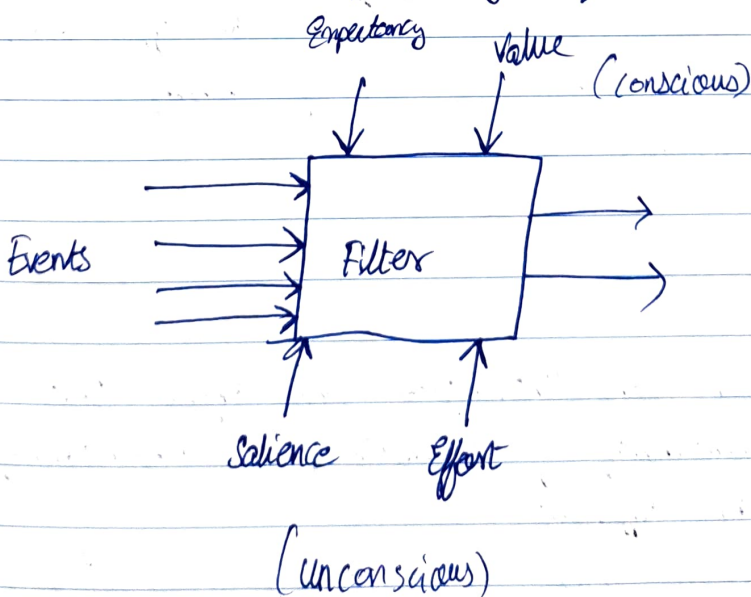 Expectancy
Value
(Conscious)
Events
Filter
Salience
Effort
(Unconscious)